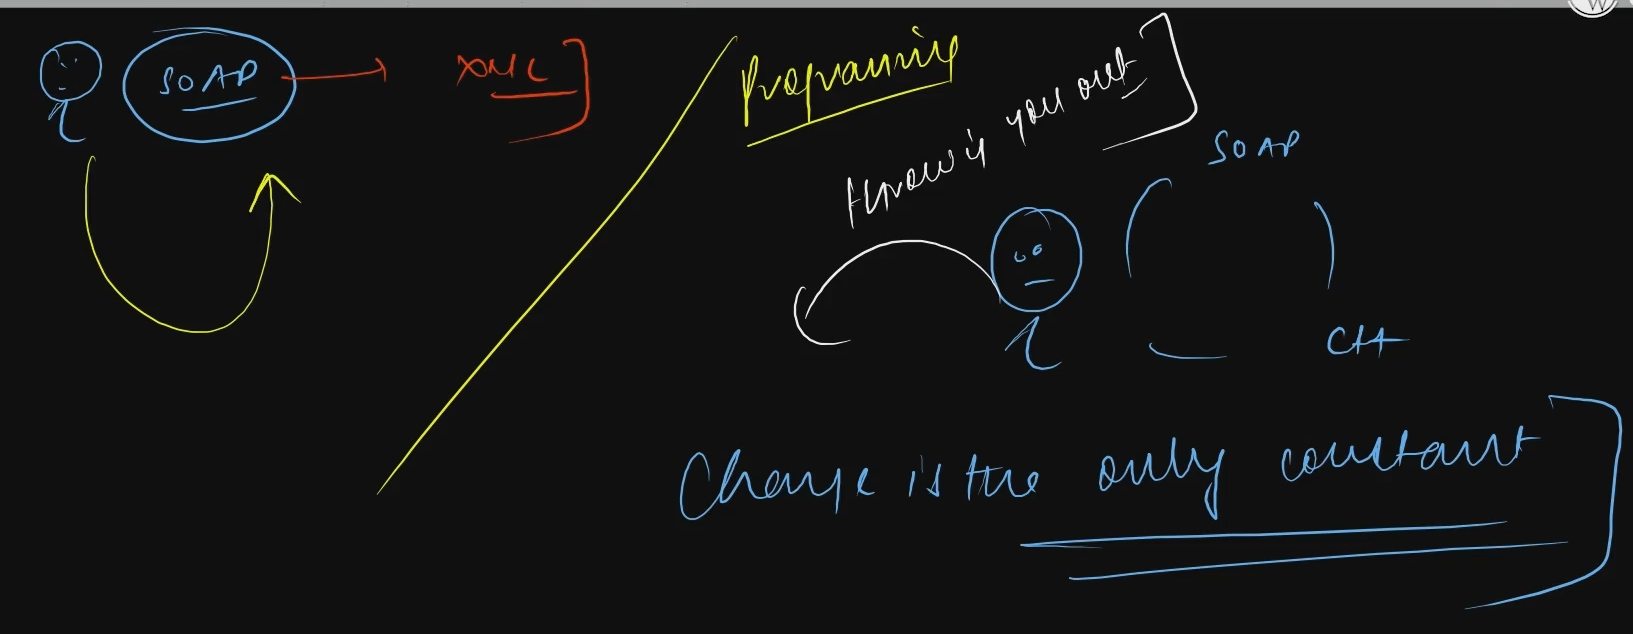 SOAP
XML
Programming
throws you out
SOAP
Change is the only constant